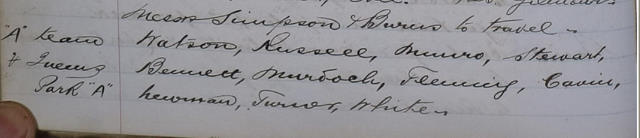 Messrs Simpson & Burns to travel -
"A" team Watson, Russell, Munro, Stewart,
v Queens Bennett, Murdoch, Fleming, Cavin,
Park "A" Newman, Turner, White -